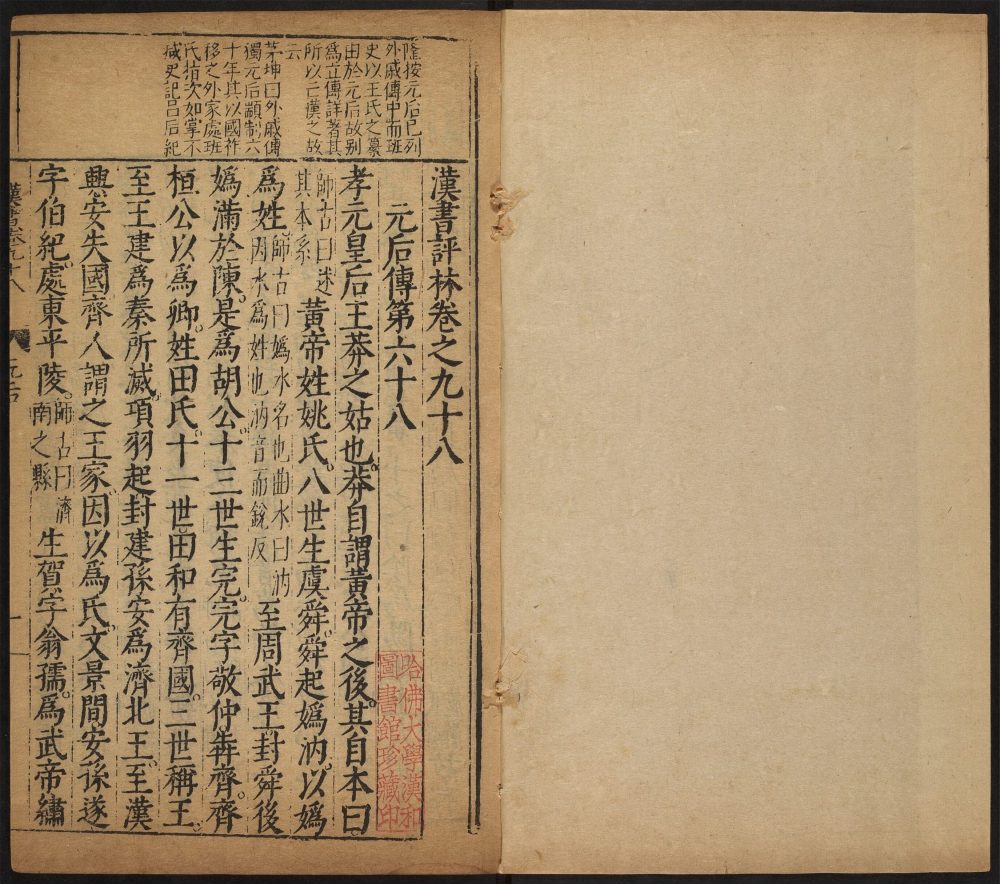 隆按元后已列
外戚傳中而班
史以王氏之篡
由於元后故别
爲立傳詳著其
所以亡漢之故
云
茅坤曰外戚傳
獨元后顓制六
十年其以國祚
移之外家處班
氏指次如掌不
減史記吕后紀
漢書評林卷之九十八
元后傳第六十八
哈佛大學漢和
圖書館珍藏印
孝元皇后王莽之姑也。莽自謂黃帝之後。其自本曰
師古曰述其本系黃帝姓姚氏。八世生虞舜。舜起嬀汭。以嬀
爲姓師古曰嬀水名也曲水曰汭因水爲姓也汭音而銳反至周武王封舜後
嬀滿於陳。是爲胡公。十三世生完。完字敬仲犇齊。齊
桓公以爲卿。姓田氏。十一世田和有齊國。三世稱王。
至王建爲秦所滅。項羽起封建孫安爲濟北王。至漢
興安失國。齊人謂之王家。因以爲氏。文景間安孫遂
字伯紀。處東平陵。師古曰濟南之縣生賀。字翁孺。爲武帝繡
漢書卷九十八
一